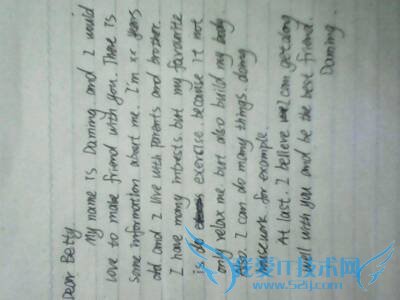 Dear Betty
My name is Daming and I would
love to make friend with you. There is
some information about me. I'm xx years
old and I live with parents and brother.
I have many intrests. but my favourite
is do exercise. because it not
only relax me but also build my body
also. I can do many things. doing
housework for example.
At last. I believe we can get along
well with you and be the best friend.
Daming.